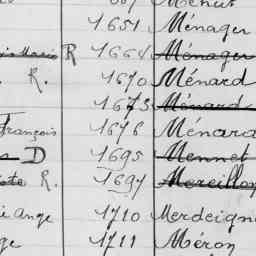 Menut
1651 Ménager
R 1664 Ménager
R. 1670 Ménard
1673 Ménard
François 1676 Ménard
D 1695 Mennet
R. 1697 Mereillon
Ange 1710 Merdeign
1711 Méron